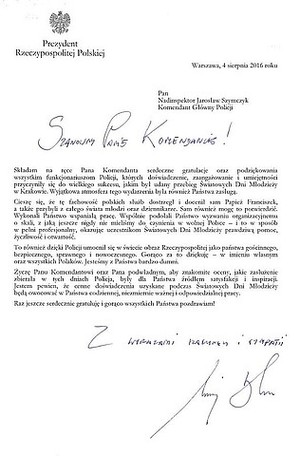 Prezydent
Rzeczypospolitej Polskiej
Warszawa, 4 sierpnia 2016 roku
Pan
Nadinspektor Jarosław Szymczyk
Komendant Główny Policji
Szanowny Panie Komendancie!
Składam na ręce Pana Komendanta serdeczne gratulacje oraz podziękowania
wszystkim funkcjonariuszom Policji, których doświadczenie, zaangażowanie i umiejętności
przyczyniły się do wielkiego sukcesu, jakim był udany przebieg Światowych Dni Młodzieży
w Krakowie. Wyjątkowa atmosfera tego wydarzenia była również Państwa zasługą.
Cieszę się, że tę fachowość polskich służb dostrzegł i docenił sam Papież Franciszek,
a także przybyli z całego świata młodzi oraz dziennikarze. Sam również mogę to potwierdzić.
Wykonali Państwo wspaniałą pracę. Wspólnie podołali Państwo wyzwaniu organizacyjnemu
o skali, z jaką jeszcze nigdy nie mieliśmy do czynienia w wolnej Polsce – i to w sposób
w pełni profesjonalny, okazując uczestnikom Światowych Dni Młodzieży prawdziwą pomoc,
życzliwość i otwartość.
To również dzięki Policji umocnił się w świecie obraz Rzeczypospolitej jako państwa gościnnego,
bezpiecznego, sprawnego i nowoczesnego. Gorąco za to dziękuję – w imieniu własnym
oraz wszystkich Polaków. Jesteśmy z Państwa bardzo dumni.
Życzę Panu Komendantowi oraz Pana podwładnym, aby znakomite oceny, jakie zasłużenie
zbierała w tych dniach Policja, były dla Państwa źródłem satysfakcji i inspiracji.
Jestem pewien, że cenne doświadczenia uzyskane podczas Światowych Dni Młodzieży
będą owocować w Państwa codziennej, niezmiernie ważnej i odpowiedzialnej pracy.
Raz jeszcze serdecznie gratuluję i gorąco wszystkich Państwa pozdrawiam!
Z wyrazami szacunku i sympatii